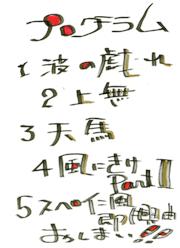 プログラム
1 波の戯れ
2 上無
3 天馬
4 風にきけ
Part II
5 スペイン風
即興曲
おしまい!!